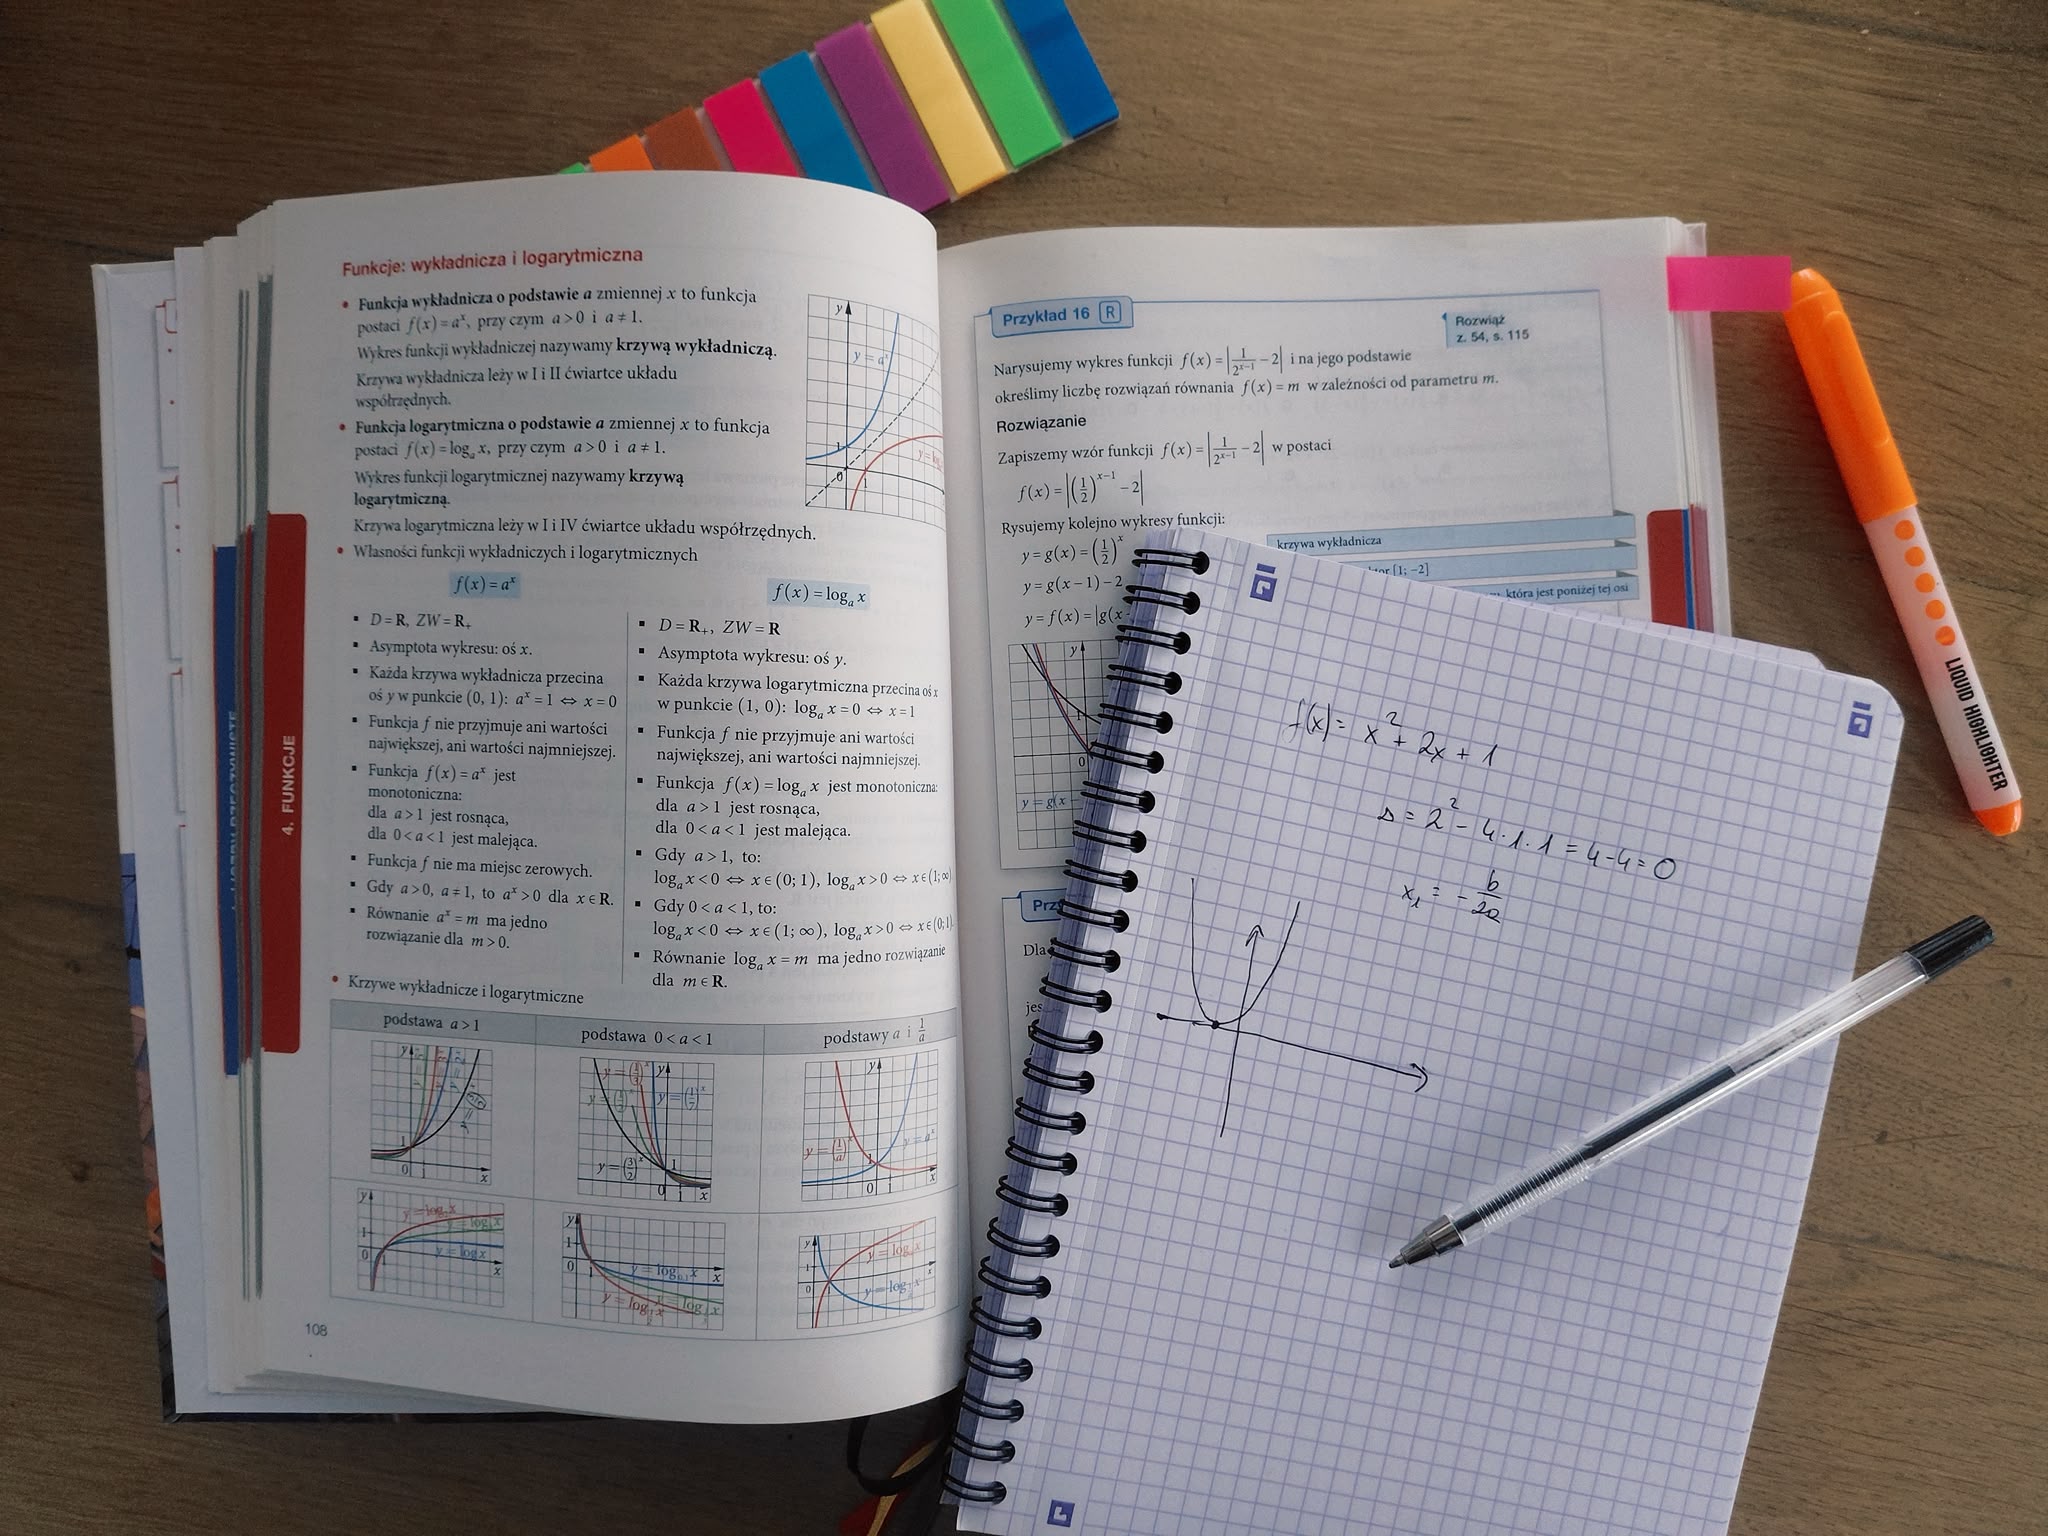 Funkcje: wykładnicza i logarytmiczna
• Funkcja wykładnicza o podstawie a zmiennej x to funkcja
postaci f(x) = aˣ, przy czym a > 0 i a ≠ 1.
Wykres funkcji wykładniczej nazywamy krzywą wykładniczą.
Krzywa wykładnicza leży w I i II ćwiartce układu
współrzędnych.
• Funkcja logarytmiczna o podstawie a zmiennej x to funkcja
postaci f(x) = logₐ x, przy czym a > 0 i a ≠ 1.
Wykres funkcji logarytmicznej nazywamy krzywą
logarytmiczną.
Krzywa logarytmiczna leży w I i IV ćwiartce układu współrzędnych.
y
y = aˣ
1
0 1
• Własności funkcji wykładniczych i logarytmicznych
f(x) = aˣ
▪ D = R, ZW = R₊
▪ Asymptota wykresu: oś x.
▪ Każda krzywa wykładnicza przecina
oś y w punkcie (0, 1): aˣ = 1 ⇔ x = 0
▪ Funkcja f nie przyjmuje ani wartości
największej, ani wartości najmniejszej.
▪ Funkcja f(x) = aˣ jest
monotoniczna:
dla a > 1 jest rosnąca,
dla 0 < a < 1 jest malejąca.
▪ Funkcja f nie ma miejsc zerowych.
▪ Gdy a > 0, a ≠ 1, to aˣ > 0 dla x ∈ R.
▪ Równanie aˣ = m ma jedno
rozwiązanie dla m > 0.
f(x) = logₐ x
▪ D = R₊, ZW = R
▪ Asymptota wykresu: oś y.
▪ Każda krzywa logarytmiczna przecina oś x
w punkcie (1, 0): logₐ x = 0 ⇔ x = 1
▪ Funkcja f nie przyjmuje ani wartości
największej, ani wartości najmniejszej.
▪ Funkcja f(x) = logₐ x jest monotoniczna:
dla a > 1 jest rosnąca,
dla 0 < a < 1 jest malejąca.
▪ Gdy a > 1, to:
logₐ x < 0 ⇔ x ∈ (0; 1), logₐ x > 0 ⇔ x ∈ (1; ∞)
▪ Gdy 0 < a < 1, to:
logₐ x < 0 ⇔ x ∈ (1; ∞), logₐ x > 0 ⇔ x ∈ (0; 1).
▪ Równanie logₐ x = m ma jedno rozwiązanie
dla m ∈ R.
• Krzywe wykładnicze i logarytmiczne
podstawa a > 1
podstawa 0 < a < 1
podstawy a i 1/a
y = (1/a)ˣ
y = aˣ
y = log x
108
4. FUNKCJE
Przykład 16 R
Rozwiąż
z. 54, s. 115
Narysujemy wykres funkcji f(x) = |1/2ˣ⁻¹ − 2| i na jego podstawie
określimy liczbę rozwiązań równania f(x) = m w zależności od parametru m.
Rozwiązanie
Zapiszemy wzór funkcji f(x) = |1/2ˣ⁻¹ − 2| w postaci
f(x) = |(1/2)ˣ⁻¹ − 2|
Rysujemy kolejno wykresy funkcji:
y = g(x) = (1/2)ˣ
krzywa wykładnicza
y = g(x − 1) − 2
[1; −2]
y = f(x) = |g(x
która jest poniżej tej osi
y
1
0
y = g(x −
Dla
f(x) = x² + 2x + 1
Δ = 2² − 4·1·1 = 4−4 = 0
x₁ = − b/2a
LIQUID HIGHLIGHTER